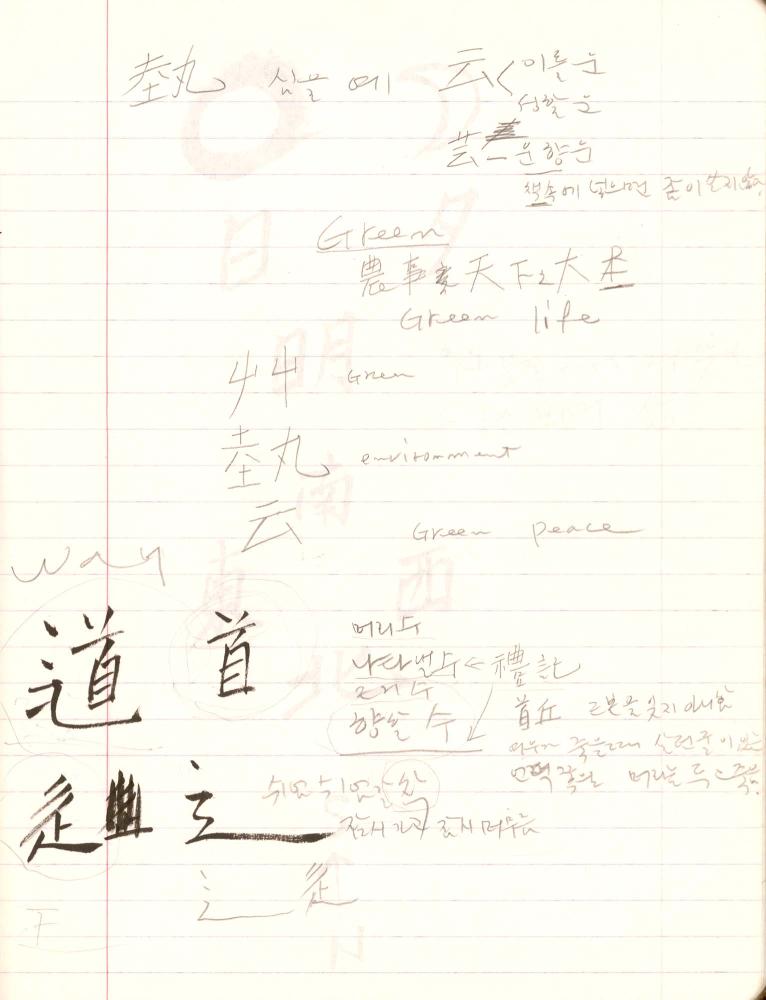 埶 심을 예 云 < 이를 운
성할 운
芸 - 운향 운
책속에 넣으면 좀이 쓰지않음
Green
農事 天下之大本
Green life
艸 Green
埶 environment
云 Green peace
way
道 首 머리 수
나타낼 수 ← 禮記
향할 수
首丘 근본을 잊지 아니함
여우가 죽을때 살던굴이 있는
언덕쪽으로 머리를 두고 죽음
辵 쉬엄쉬엄갈 착
잠시 가고 잠시 머무름
辶 辵